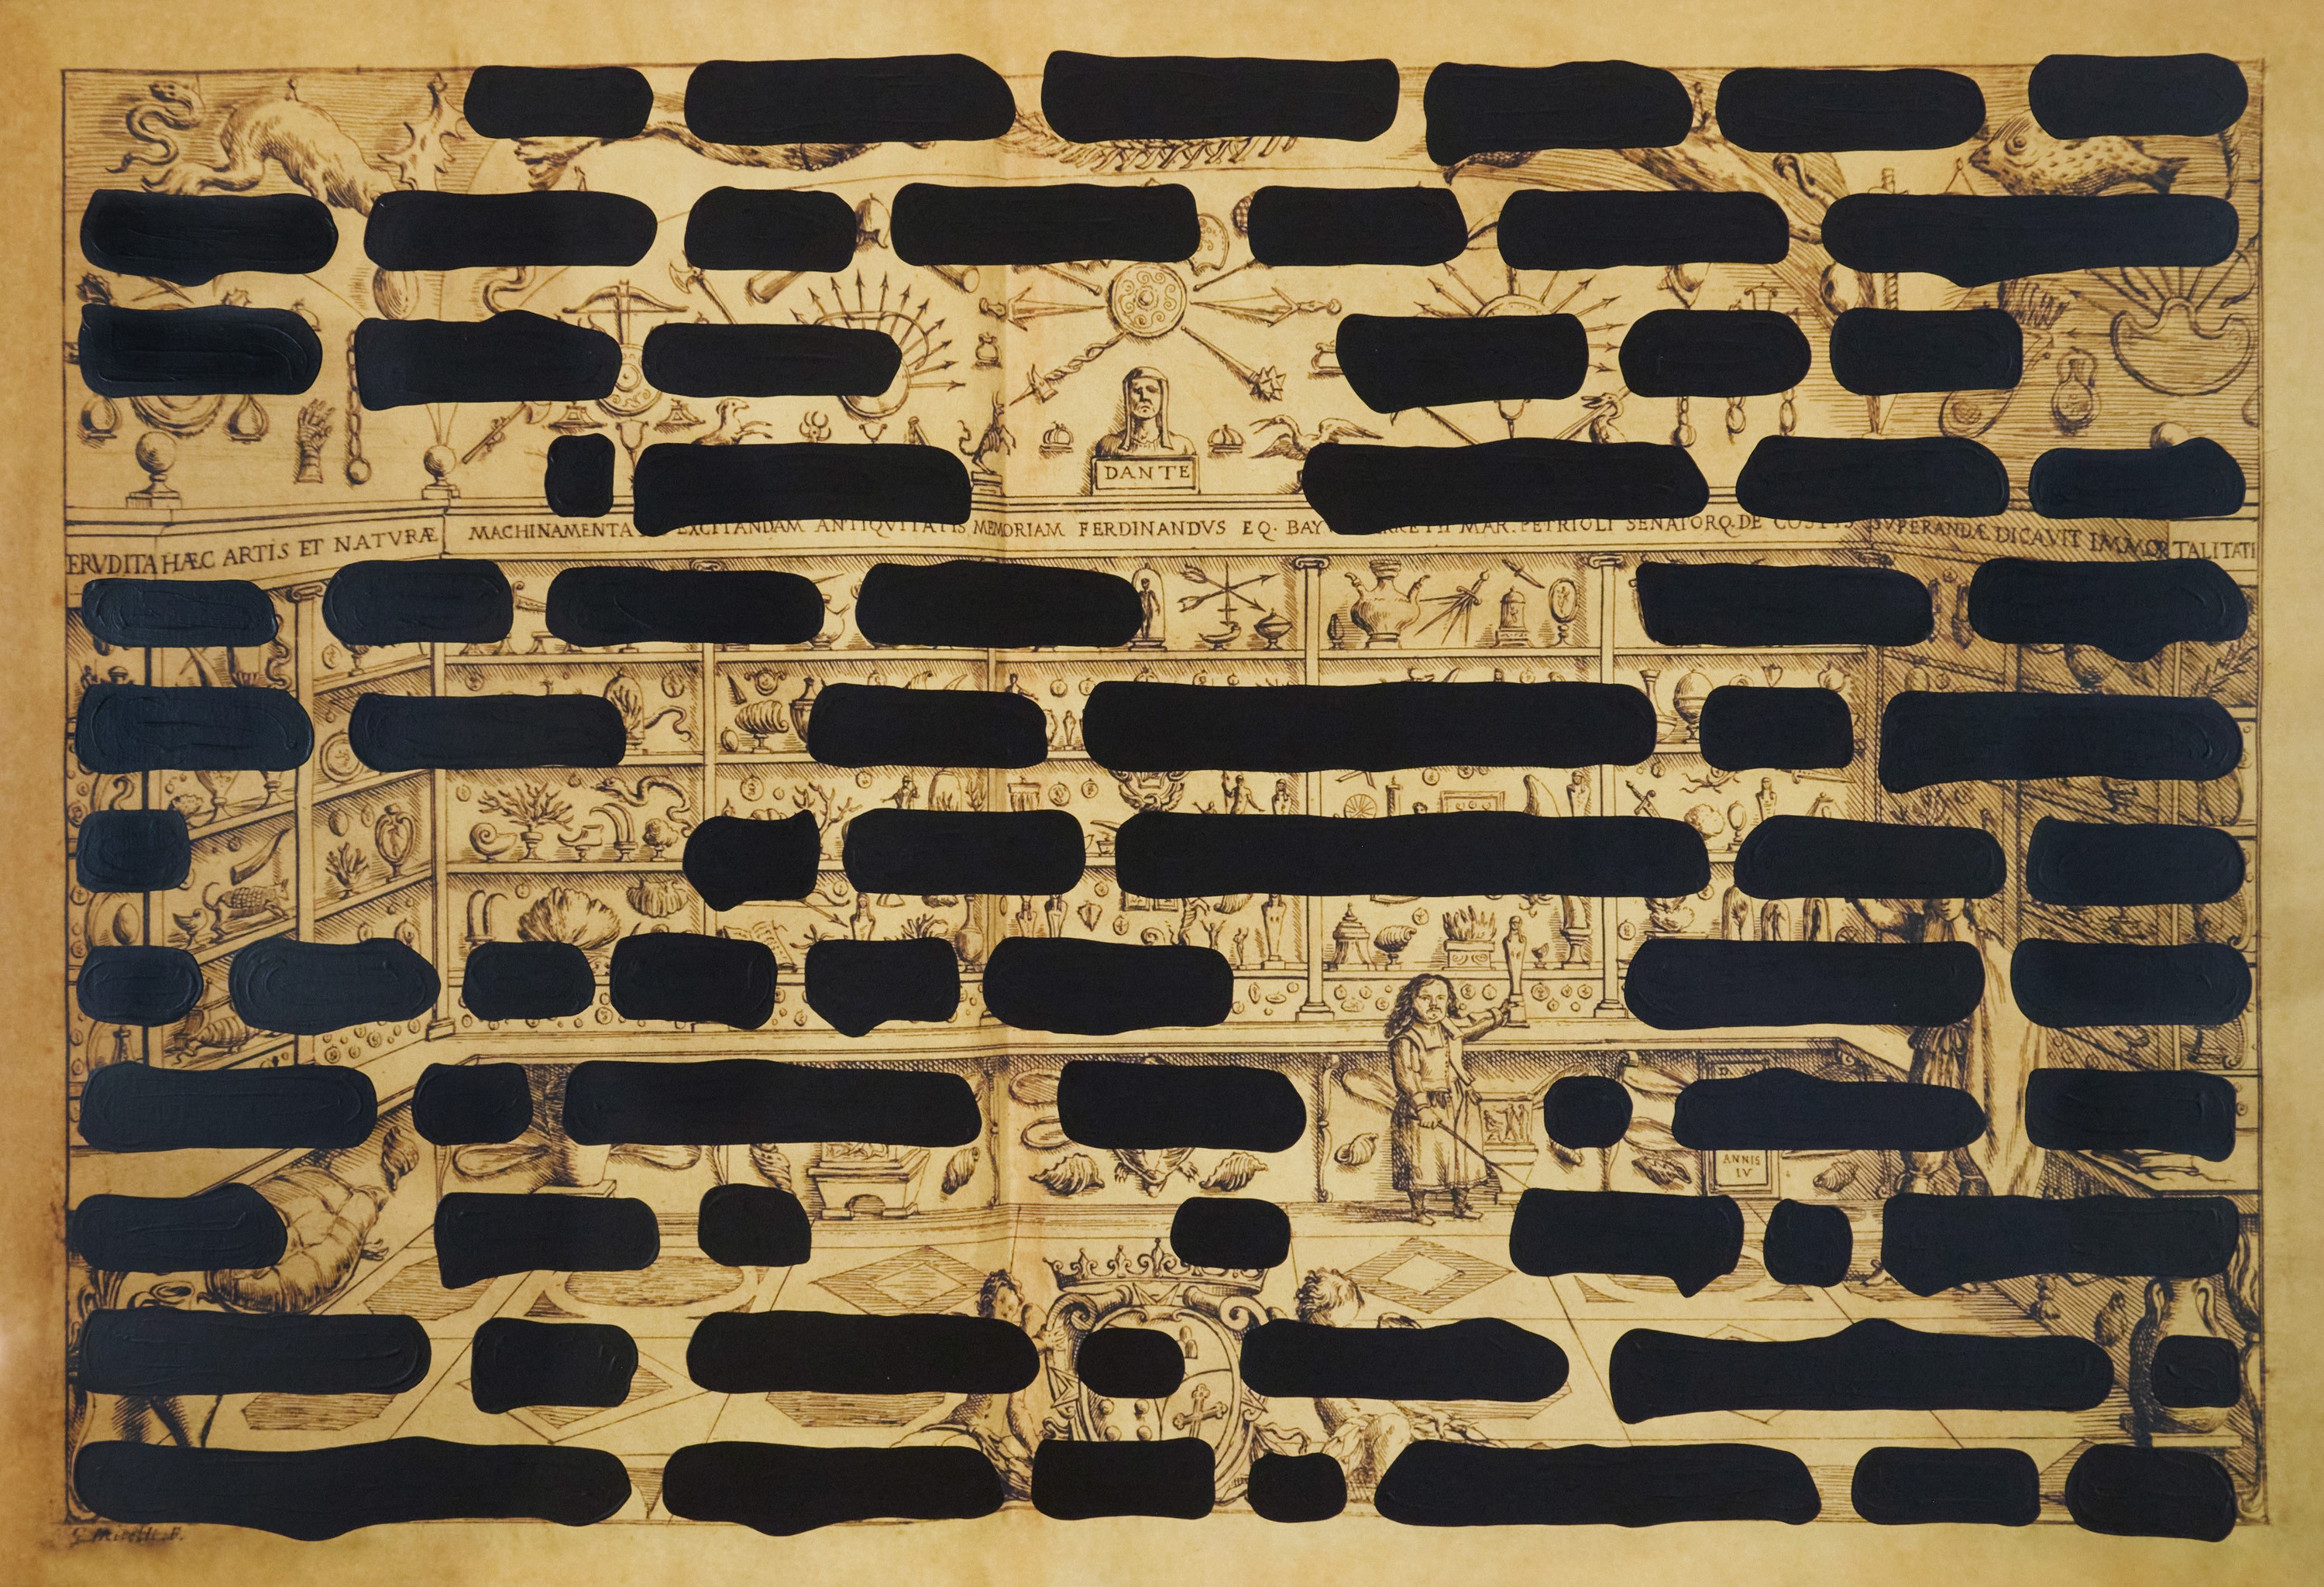 DANTE
ERVDITA HÆC ARTIS ET NATVRÆ MACHINAMENTA EXCITANDAM ANTIQVITATIS MEMORIAM FERDINANDVS EQ. BAY MAR. PETRIOLI SENATORQ. DE SVPERANDÆ DICAVIT IMMORTALITATI
ANNIS
IV